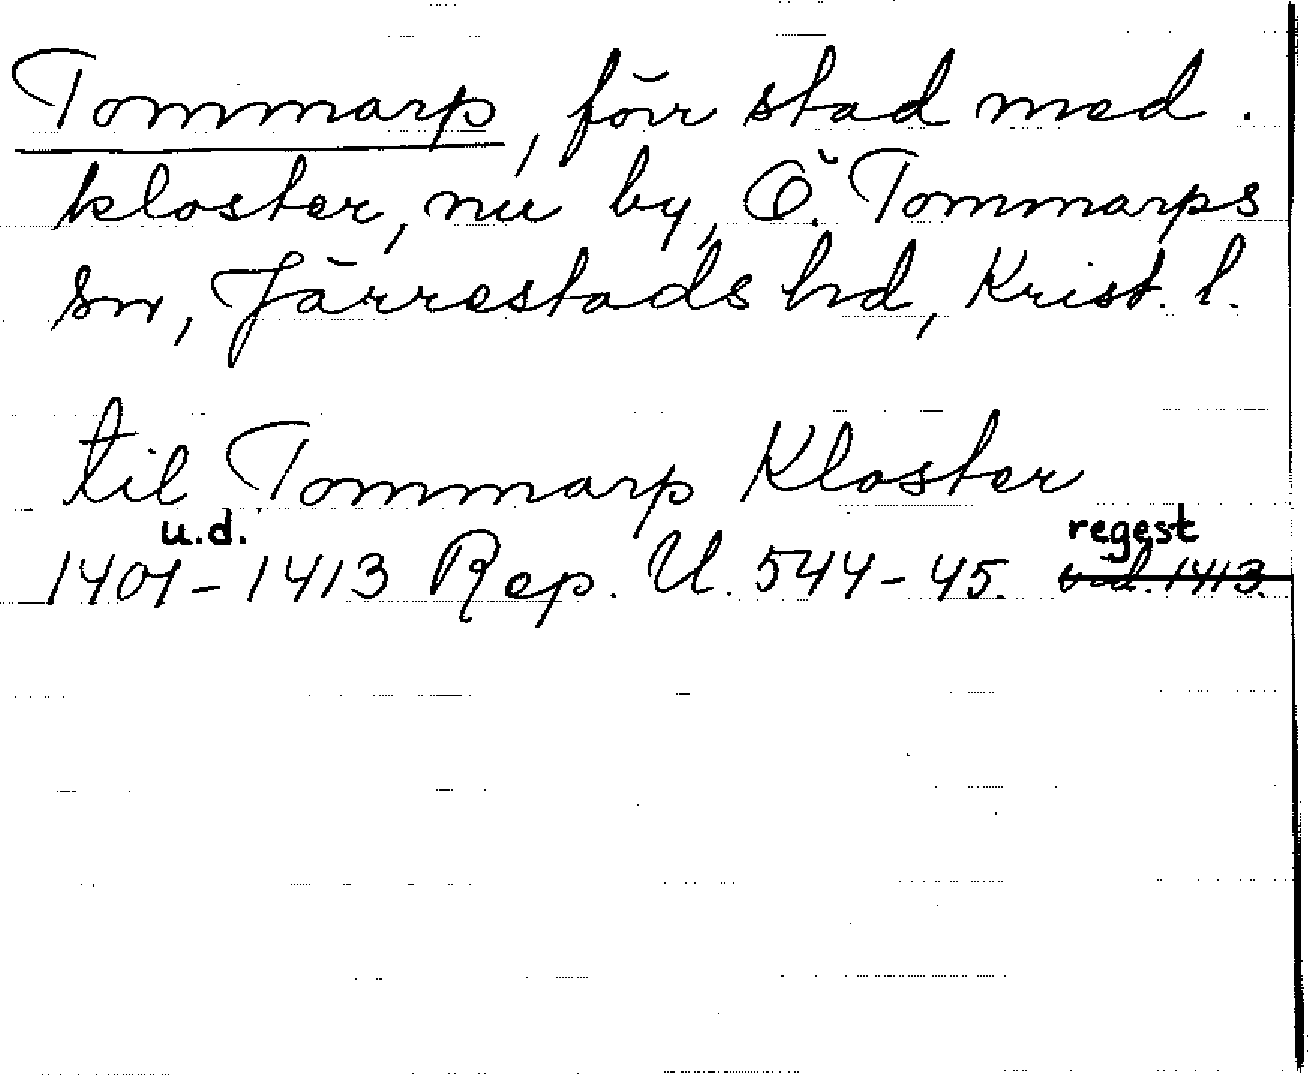 Tommarp, förr stad med.
kloster, nu by, Ö. Tommarps
sn, Järrestads hd, Krist. l.
til Tommarp Kloster
u.d. regest
1401-1413 Rep. U. 544-45. u.d. 1413.